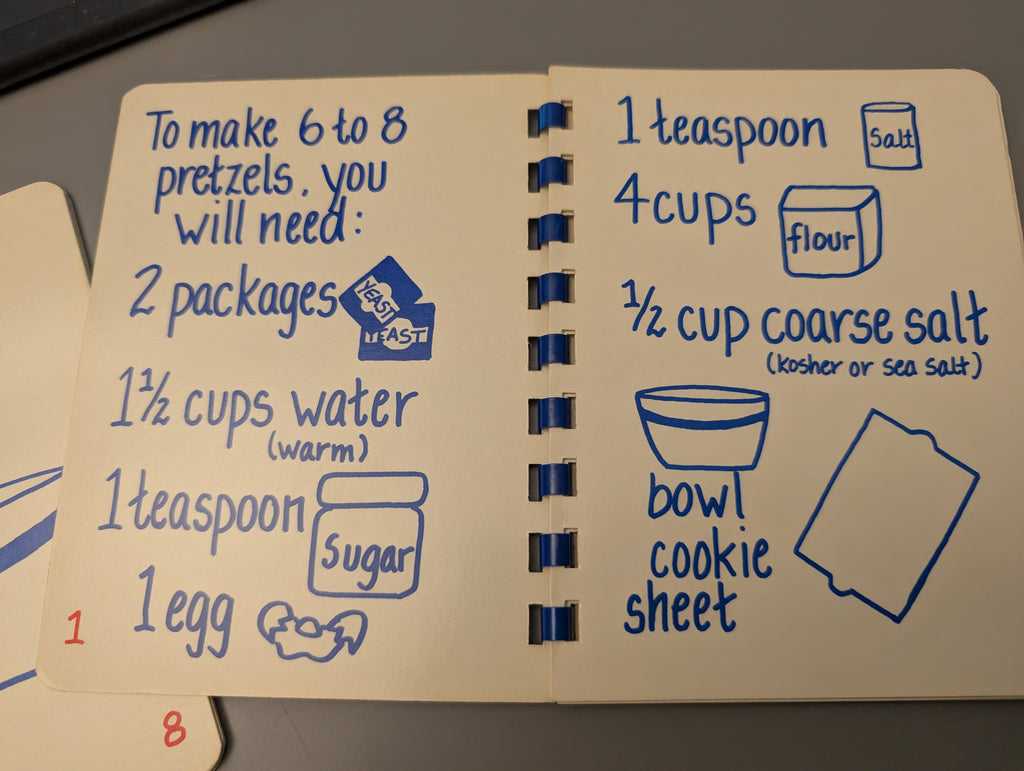 To make 6 to 8
pretzels, you
will need:
2 packages
YEAST
YEAST
1 1/2 cups water
(warm)
1 teaspoon
Sugar
1 egg
1
8
1 teaspoon
Salt
4 cups
flour
1/2 cup coarse salt
(kosher or sea salt)
bowl
cookie
sheet